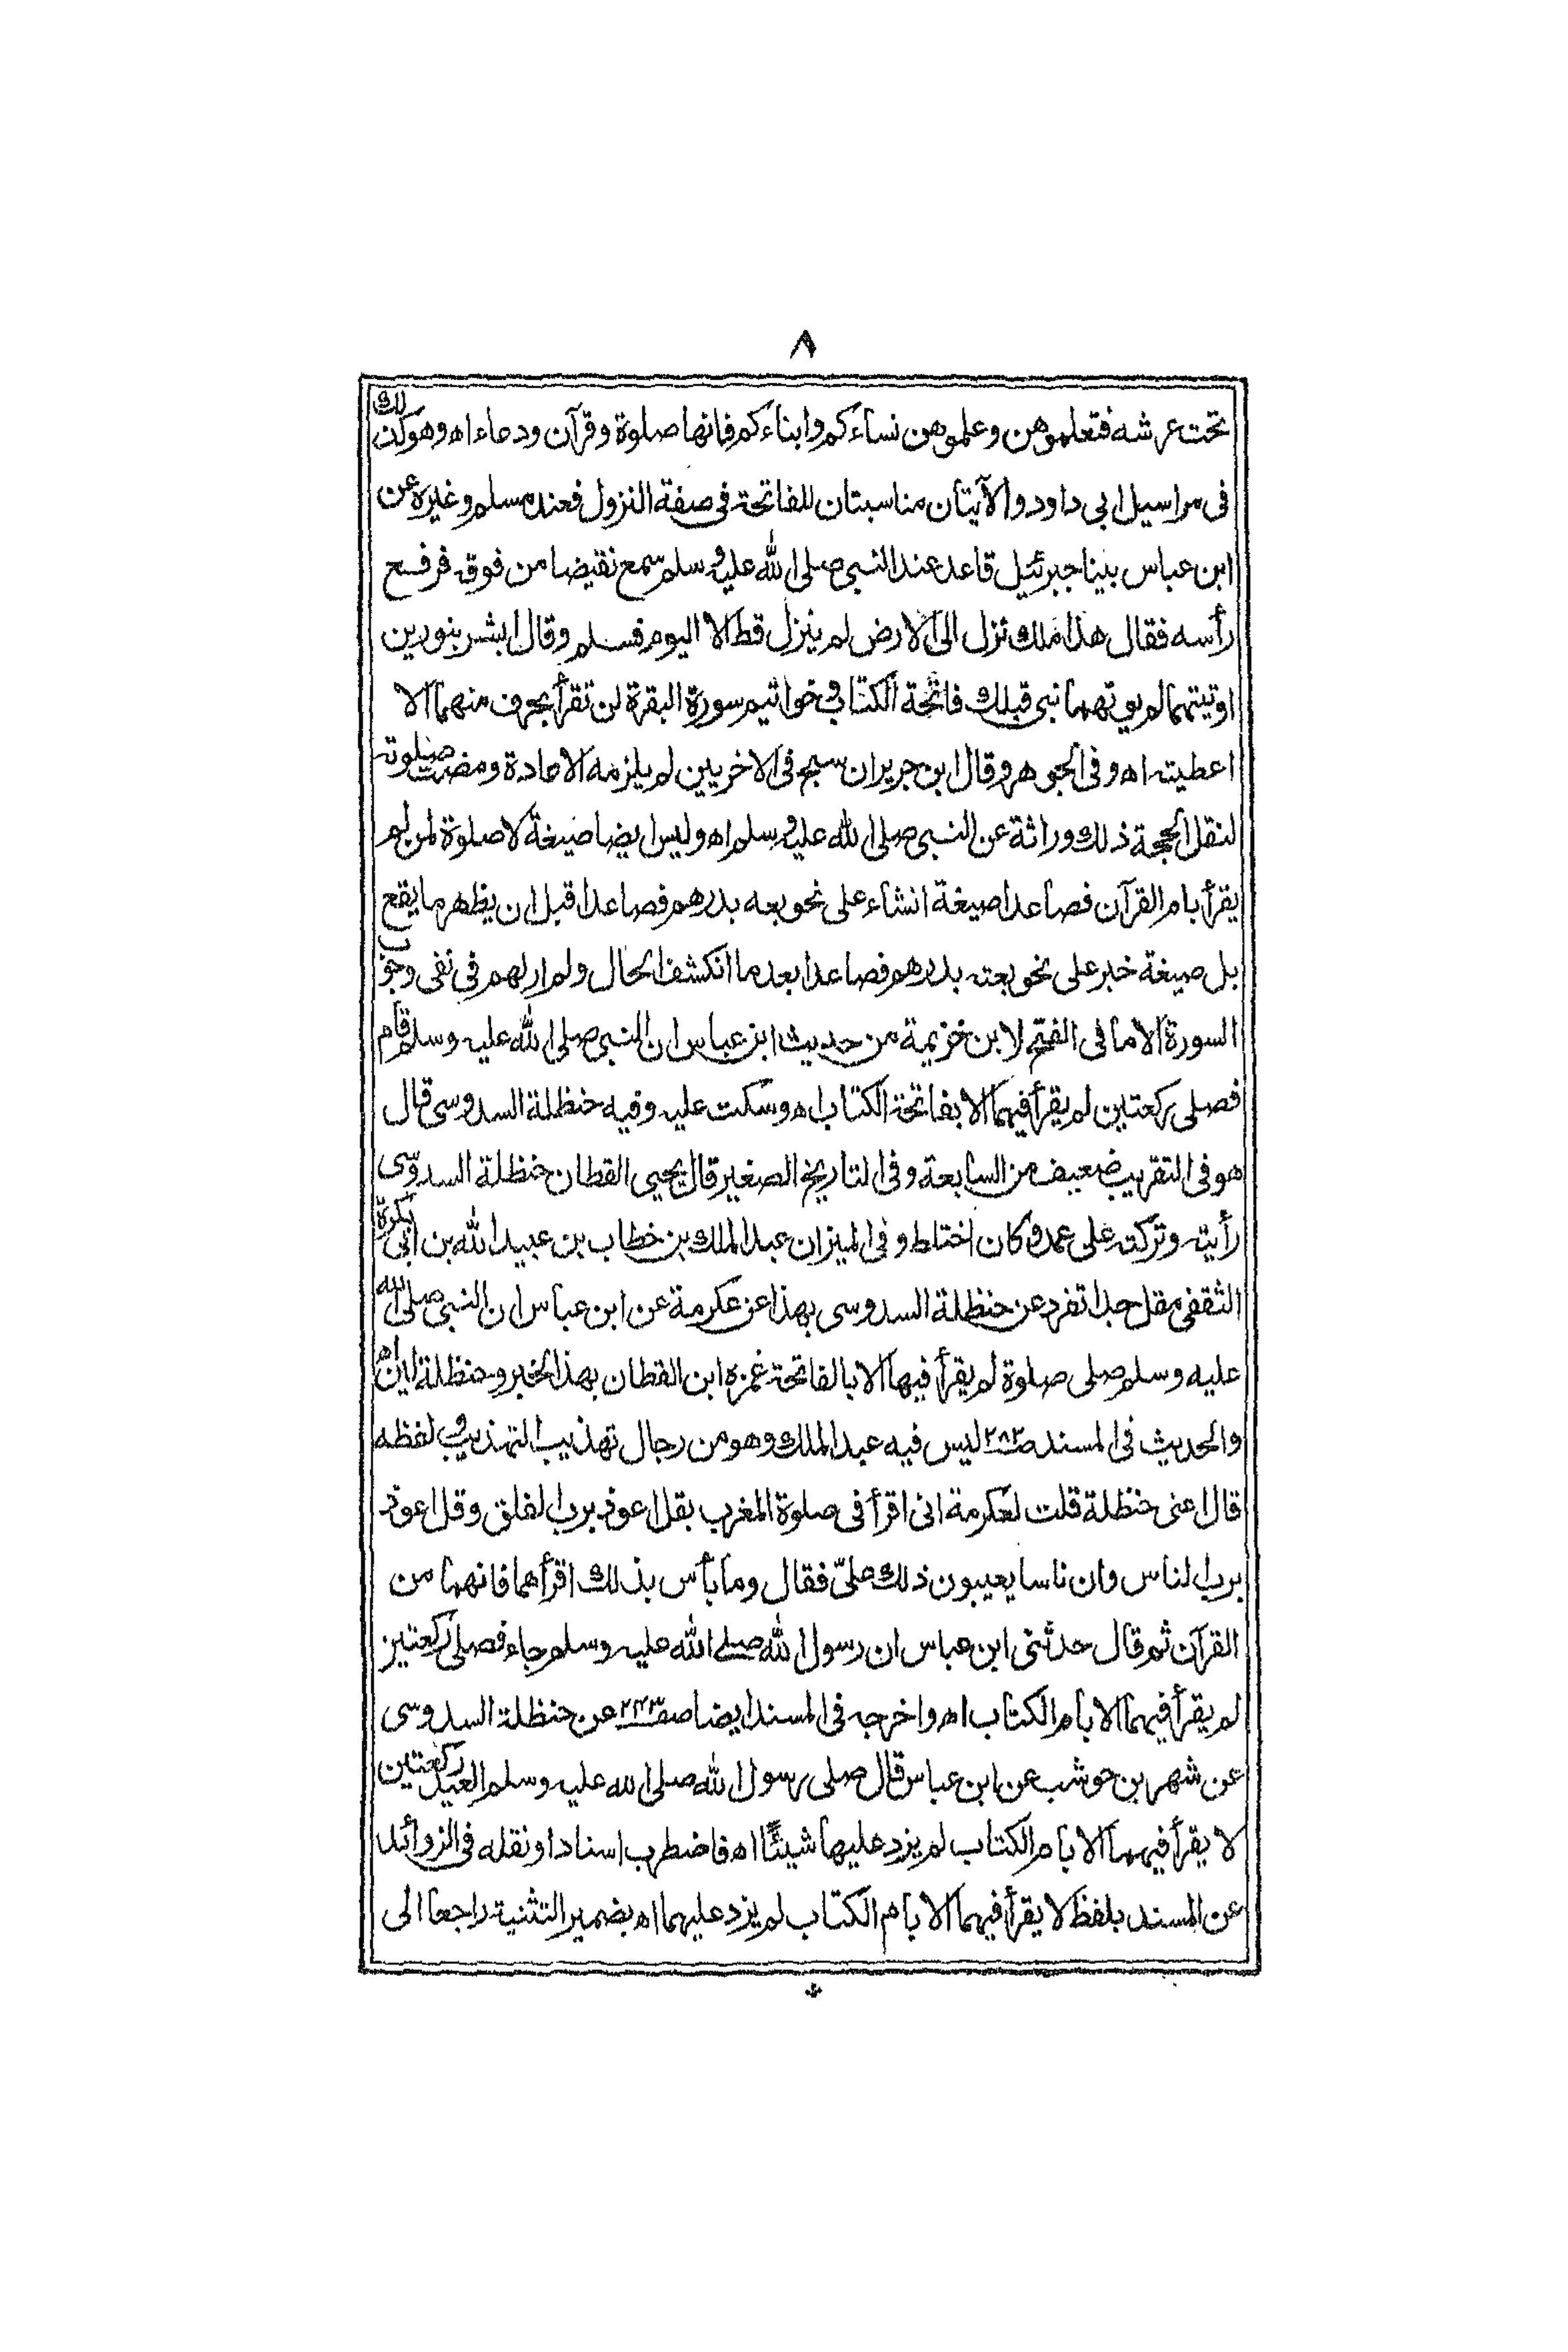 ٨
تحت عرشه فتعلموهن وعلموهن نساءكم وابناءكم فانها صلوة وقرآن ودعاء اه وهو كذلك
فى مراسيل ابى داود والآيتان مناسبتان للفاتحة فى صفة النزول فعند مسلم وغيره عن
ابن عباس بينا جبرئيل قاعد عند النبى صلى الله عليه وسلم سمع نقيضا من فوقه فرفع
رأسه فقال هذا ملك نزل الى الارض لم ينزل قط الا اليوم فسلم وقال ابشر بنورين
اوتيتهما لم يوتهما نبى قبلك فاتحة الكتاب وخواتيم سورة البقرة لن تقرأ بحرف منهما الا
اعطيته اه وفى الجوهر وقال ابن جرير ان سبح فى الاخريين لم يلزمه الاعادة ومضت صلوته
لنقل الحجة ذلك وراثة عن النبى صلى الله عليه وسلم اه وليس ايضا صيغة لا صلوة لمن لم
يقرأ بام القرآن فصاعدا صيغة انشاء على نحو بعه بدرهم فصاعدا قبل ان يظهر ما يقع
بل صيغة خبر على نحو بعته بدرهم فصاعدا بعد ما انكشف الحال ولم ار لهم فى نفى وجوب
السورة الا ما فى الفتح لابن خزيمة من حديث ابن عباس ان النبى صلى الله عليه وسلم قام
فصلى ركعتين لم يقرأ فيهما الا بفاتحة الكتاب اه وسكت عليه وفيه حنظلة السدوسى قال
هو فى التقريب ضعيف من السابعة وفى التاريخ الصغير قال يحيى القطان حنظلة السدوسى
رأيته وتركته على عمد وكان اختلط وفى الميزان عبد الملك بن خطاب بن عبيد الله بن ابى بكرة
الثقفى مقل جدا تفرد عن حنظلة السدوسى بهذا عن عكرمة عن ابن عباس ان النبى صلى الله
عليه وسلم صلى صلوة لم يقرأ فيها الا بالفاتحة غمزه ابن القطان بهذا الخبر وحنظلة لين اه
والحديث فى المسند صـ٢٨٢ ليس فيه عبد الملك وهو من رجال تهذيب التهذيب ولفظه
قال اعنى حنظلة قلت لعكرمة انى اقرأ فى صلوة المغرب بقل اعوذ برب الفلق وقل اعوذ
برب الناس وان ناسا يعيبون ذلك علىّ فقال وما بأس بذلك اقرأهما فانهما من
القرآن ثم قال حدثنى ابن عباس ان رسول الله صلى الله عليه وسلم جاء فصلى ركعتين
لم يقرأ فيهما الا بام الكتاب اه واخرجه فى المسند ايضا صفـ٢٤٣ عن حنظلة السدوسى
عن شهر بن حوشب عن ابن عباس قال صلى رسول الله صلى الله عليه وسلم العيد ركعتين
لا يقرأ فيهما الا بام الكتاب لم يزد عليها شيئًا اه فاضطرب اسنادا ونقله فى الزوائد
عن المسند بلفظ لا يقرأ فيهما الا بام الكتاب لم يزد عليهما اه بضمير التثنية راجعا الى